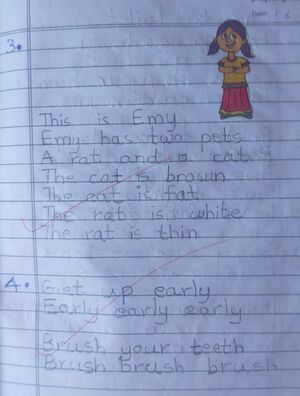 3.
This is Emy
Emy has two pets
A rat and a cat
The cat is brown
The cat is fat
The rat is white
The rat is thin
4.
Get up early
Early early early
Brush your teeth
Brush brush brush